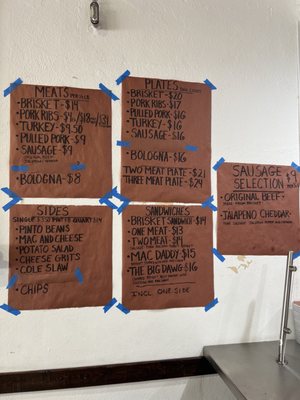 MEATS
•BRISKET-$14
•PORK RIBS-
•TURKEY-$9.50
•PULLED PORK-$9
•SAUSAGE-$9
•BOLOGNA-$8
PLATES
•BRISKET-$20
•PORK RIBS-$17
•PULLED PORK-$16
•TURKEY-$16
•SAUSAGE-$16
•BOLOGNA-$16
TWO MEAT PLATE-$21
THREE MEAT PLATE-$24
SAUSAGE
SELECTION
•ORIGINAL BEEF-
•JALAPENO CHEDDAR-
SIDES
•PINTO BEANS
•MAC AND CHEESE
•POTATO SALAD
•CHEESE GRITS
•COLE SLAW
•CHIPS
SANDWICHES
•BRISKET SANDWICH-$14
•ONE MEAT-$13
•TWO MEAT-$14
•MAC DADDY-$15
•THE BIG DAWG-$16
INCL. ONE SIDE